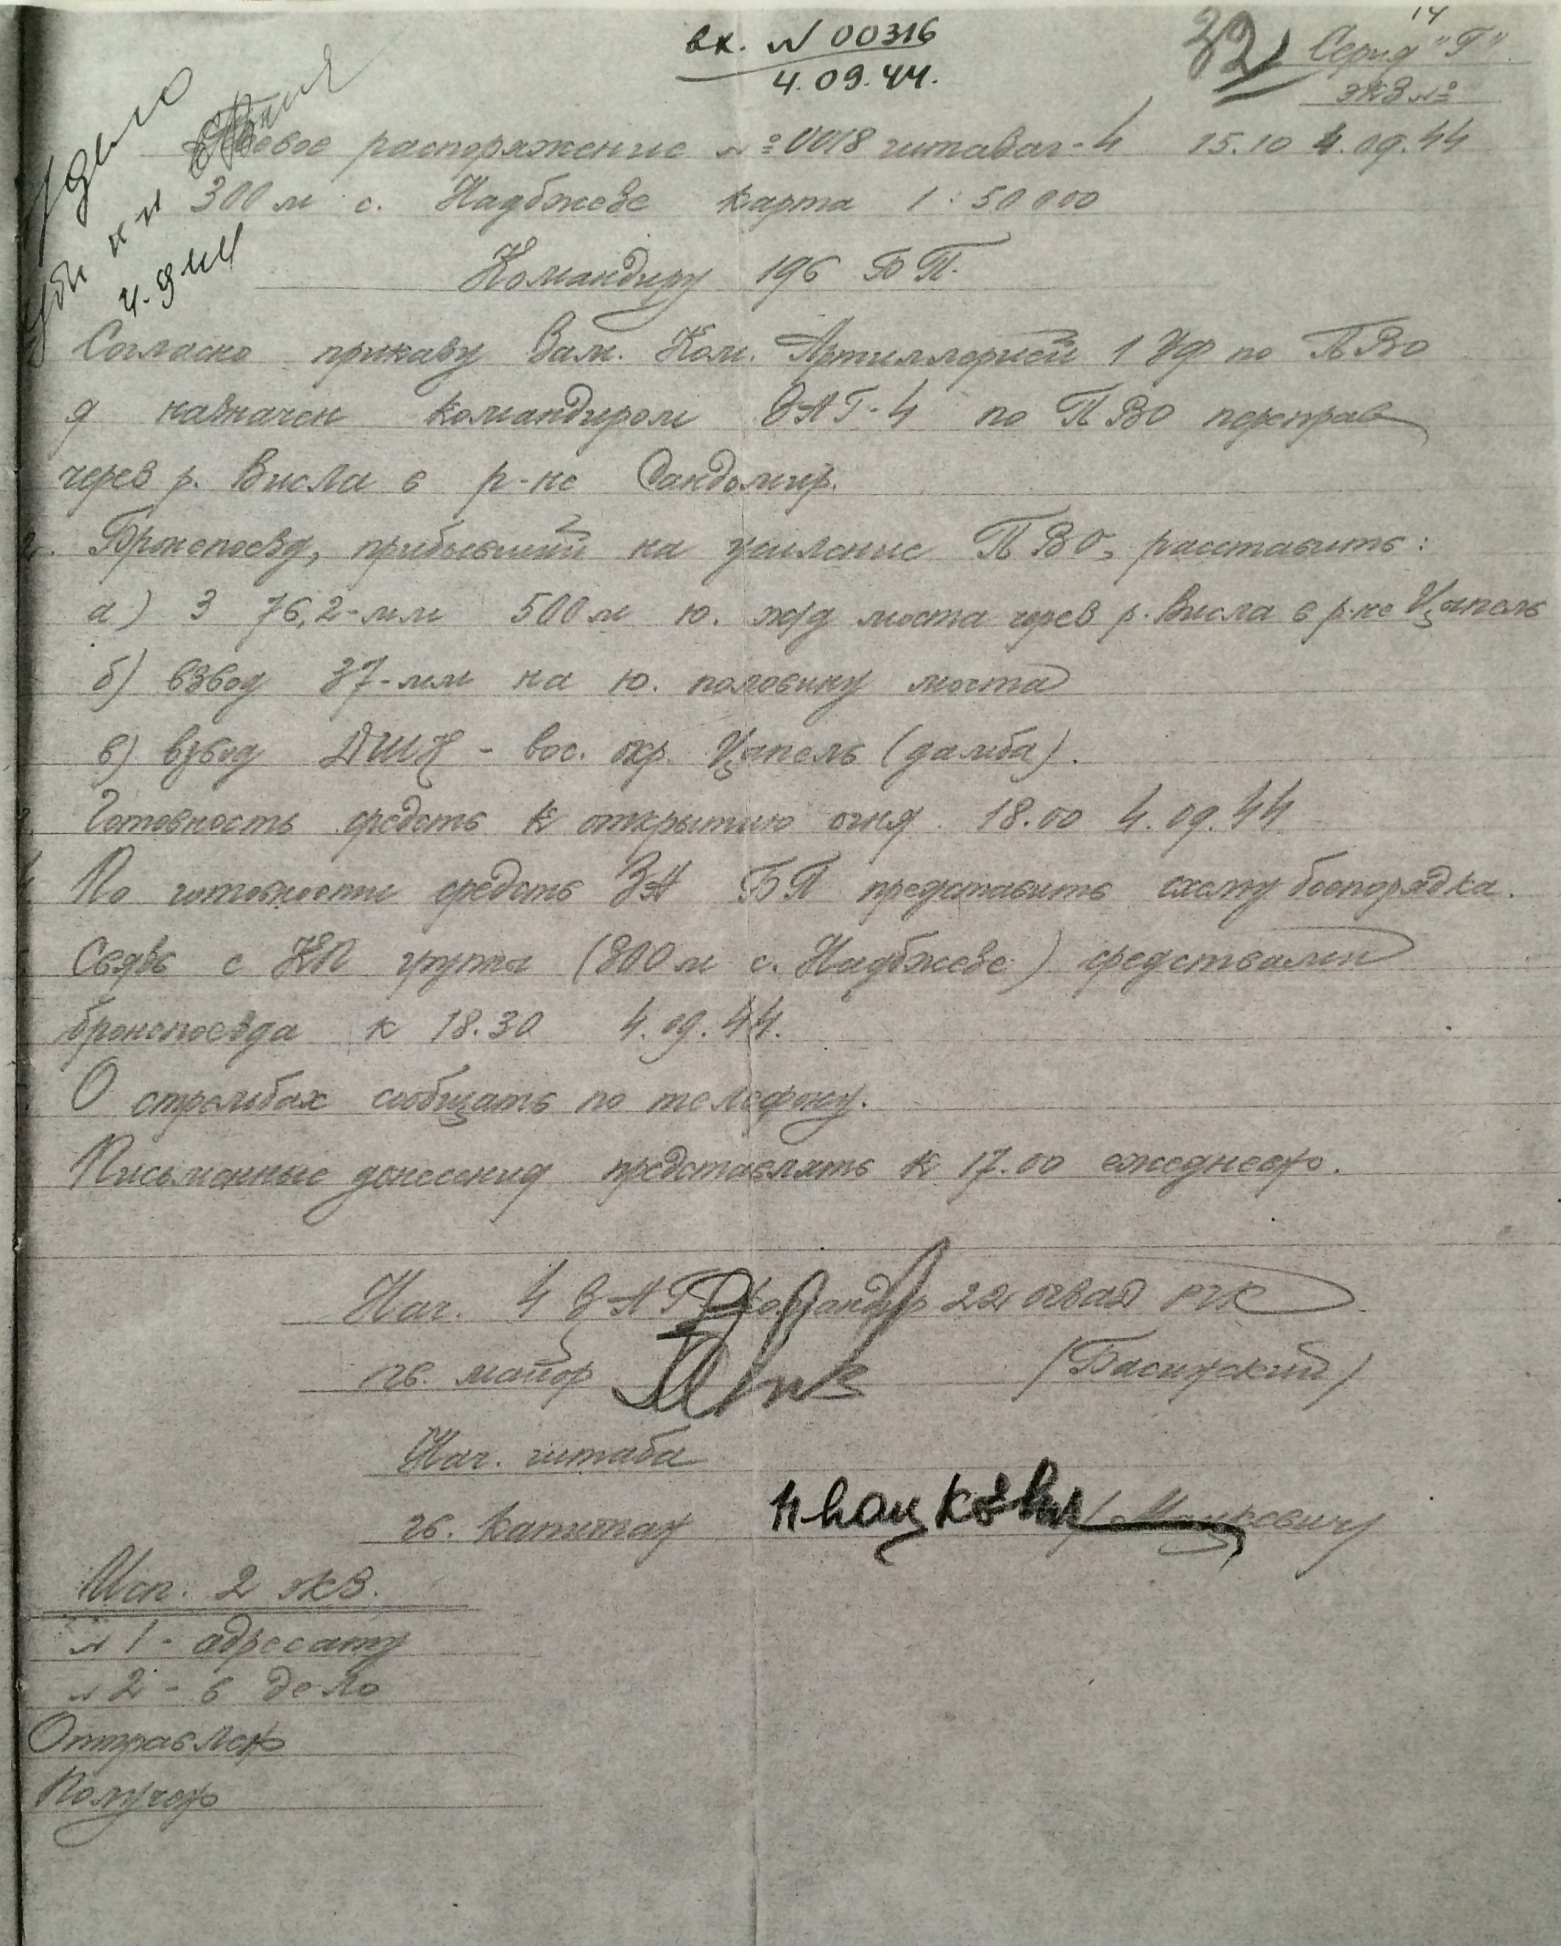 вх. № 00316
4.09.44.
32
14
Серия "Г"
экз №
Боевое распоряжение №0018 15.10 4.09.44
300 м с. Надбжезе карта 1:50000
Командиру 196 БП.
В дело
4.9.44
Согласно приказу Зам. Ком. Артиллерией 1 УФ по ПВО
я назначен командиром ЗАГ-4 по ПВО переправ
через р. Висла в р-не Сандомир.
2. Бронепоезд, прибывший на усиление ПВО, расставить:
а) 3 76,2-мм 500 м ю. ж/д моста через р. Висла в р-не Цапель
б) взвод 37-мм на ю. половину моста
в) взвод ДШК - вос. окр. Цапель (дамба).
3. Готовность средств к открытию огня 18.00 4.09.44
4. По готовности средств ЗА БП представить схему боепорядка.
Связь с КП группы (300 м с. Надбжезе) средствами
бронепоезда к 18.30 4.09.44.
О стрельбах сообщать по телефону.
Письменные донесения представлять к 17.00 ежедневно.
Нач. 4 ЗАГ Командир 221 РГК
гв. майор
Нач. штаба
гв. капитан Мацкевич /Мацкевич/
Исп. 2 экз.
№ 1 - адресату
№ 2 - в дело
Отправлен
Получен